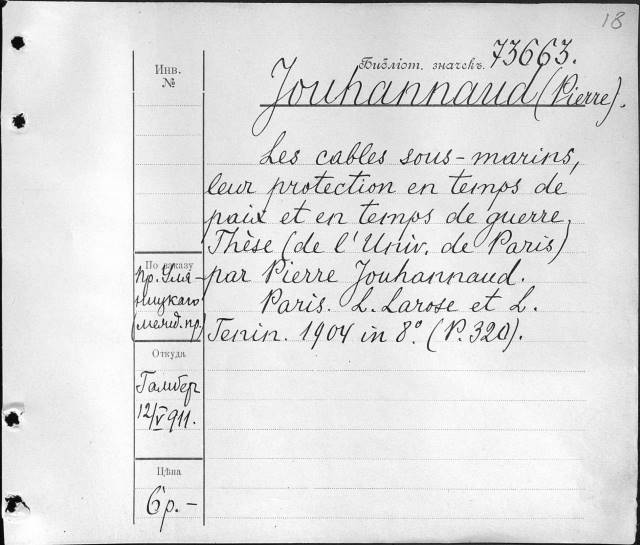 18
Инв.
№
Библіот. значекъ. 73663.
Jouhannaud (Pierre).
Les cables sous-marins,
leur protection en temps de
paix et en temps de guerre.
Thèse (de l'Univ. de Paris)
par Pierre Jouhannaud.
Paris. L. Larose et L.
Tenin. 1904 in 8º. (P. 320).
По заказу
Пр. Уля-
ницкаго
(межд. пр.)
Откуда
Гамбер
12/V 911.
Цѣна
6 р. –